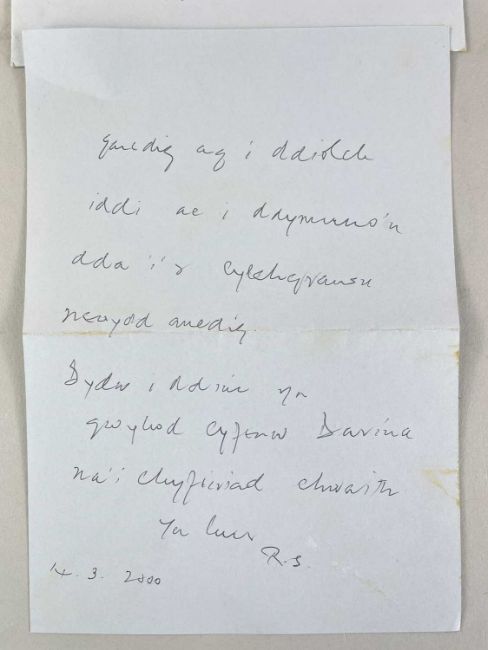 garedig ag i ddiolch
iddi ac i ddymuno'n
dda i'r cylchgrawn
newydd anedig.
Dydw i ddim yn
gwybod cyfenw Davina
na'i chyfeiriad chwaith
Yn bur
R.S.
14. 3. 2000